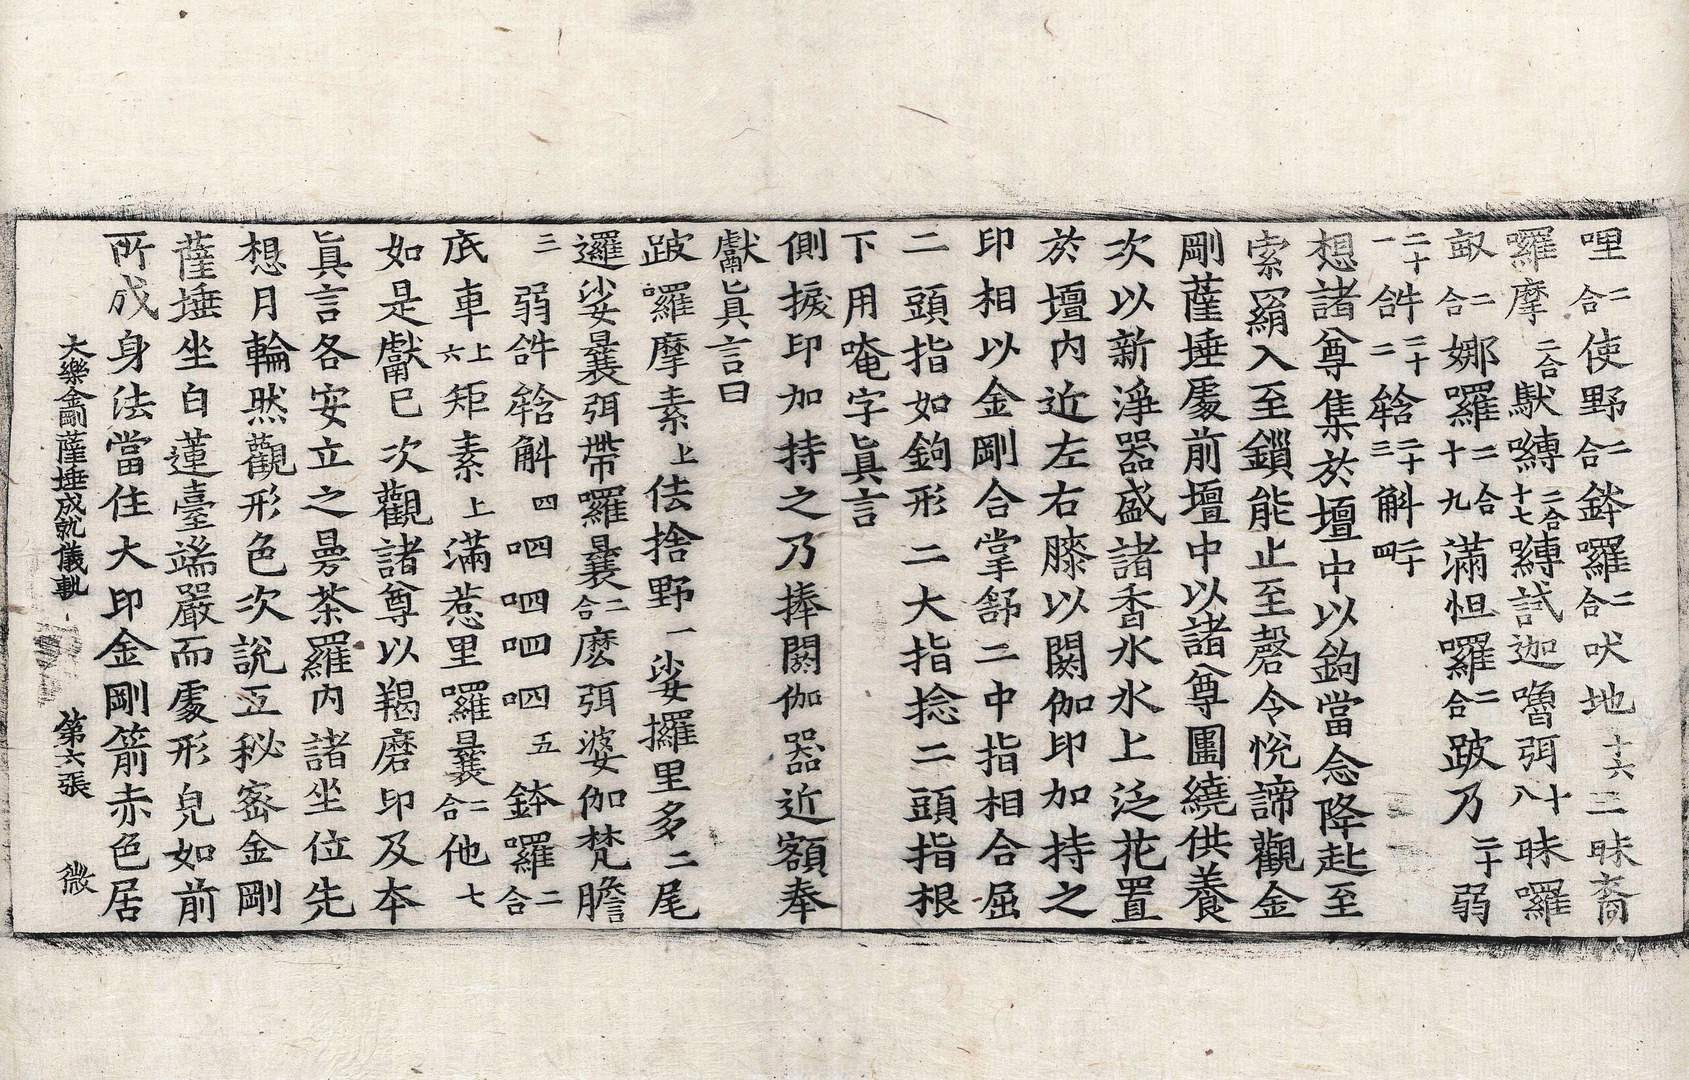 哩二合使野二合鉢囉二合吠地十六三昧裔
囉摩二合馱嚩二合十七嚩試迦嚕弭十八昧囉
𭣣二合娜囉二合十九滿怛囉二合跛乃二十弱
二十一𤙖二合二十二𤚥二十三斛二十四
想諸尊集於壇中以鉤當念降赴至
索羂入至鎖能止至磬令悅諦觀金
剛薩埵處前壇中以諸尊圍繞供養
次以新淨器盛諸香水水上泛花置
於壇內近左右膝以閼伽印加持之
印相以金剛合掌舒二中指相合屈
二頭指如鉤形二大指捻二頭指根
下用唵字眞言
側捩印加持之乃捧閼伽器近額奉
獻眞言曰
跛囉摩素上佉捨野一娑攞里多二尾
邏娑曩弭帶囉曩二合麽弭婆伽梵膽
三弱𤙖𤚥斛四呬呬呬呬五鉢囉二合
底車上六矩素上滿惹里囉曩二合他七
如是獻已次觀諸尊以羯磨印及本
眞言各安立之曼茶羅內諸坐位先
想月輪然觀形色次說五秘密金剛
薩埵坐白蓮臺端嚴而處形皃如前
所成身法當住大印金剛箭赤色居
大樂金剛薩埵成就儀軌 第六張 微